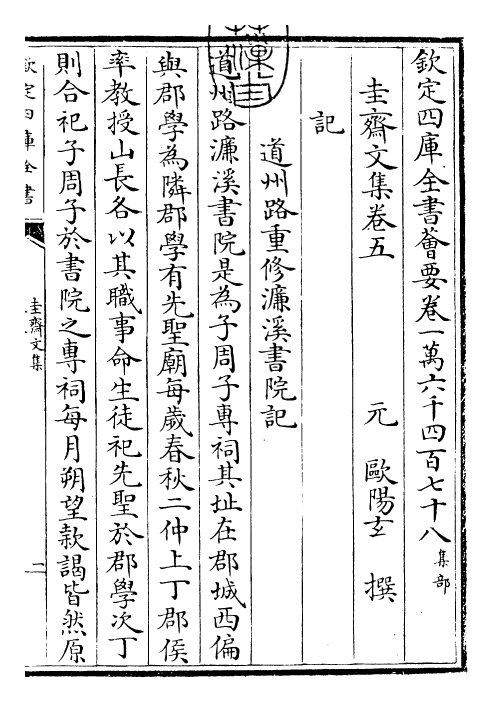 欽定四庫全書薈要卷一萬六千四百七十八 集部
圭齋文集卷五 元 歐陽玄 撰
記
道州路重修濂溪書院記
道州路濂溪書院是為子周子專祠其址在郡城西偏
與郡學為隣郡學有先聖廟每歲春秋二仲上丁郡侯
率教授山長各以其職事命生徒祀先聖於郡學次丁
則合祀子周子於書院之專祠每月朔望款謁皆然原
欽定四庫全書
圭齋文集
二